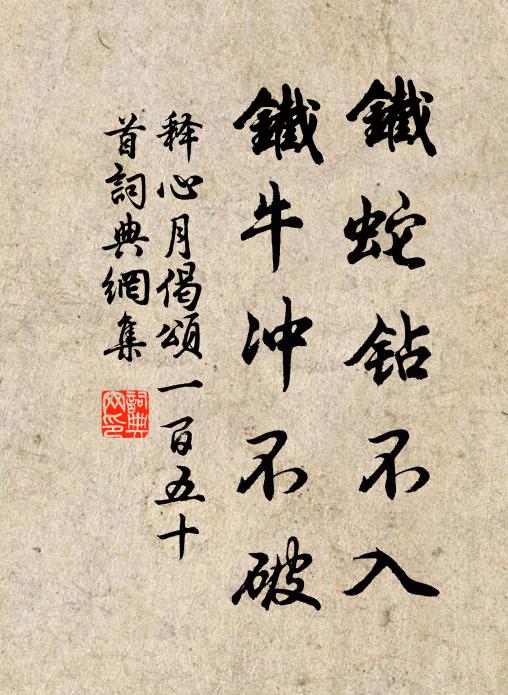 鐵蛇钻不入
鐵牛冲不破
释心月偈頌一百五十
首詞典網集
詞典网印